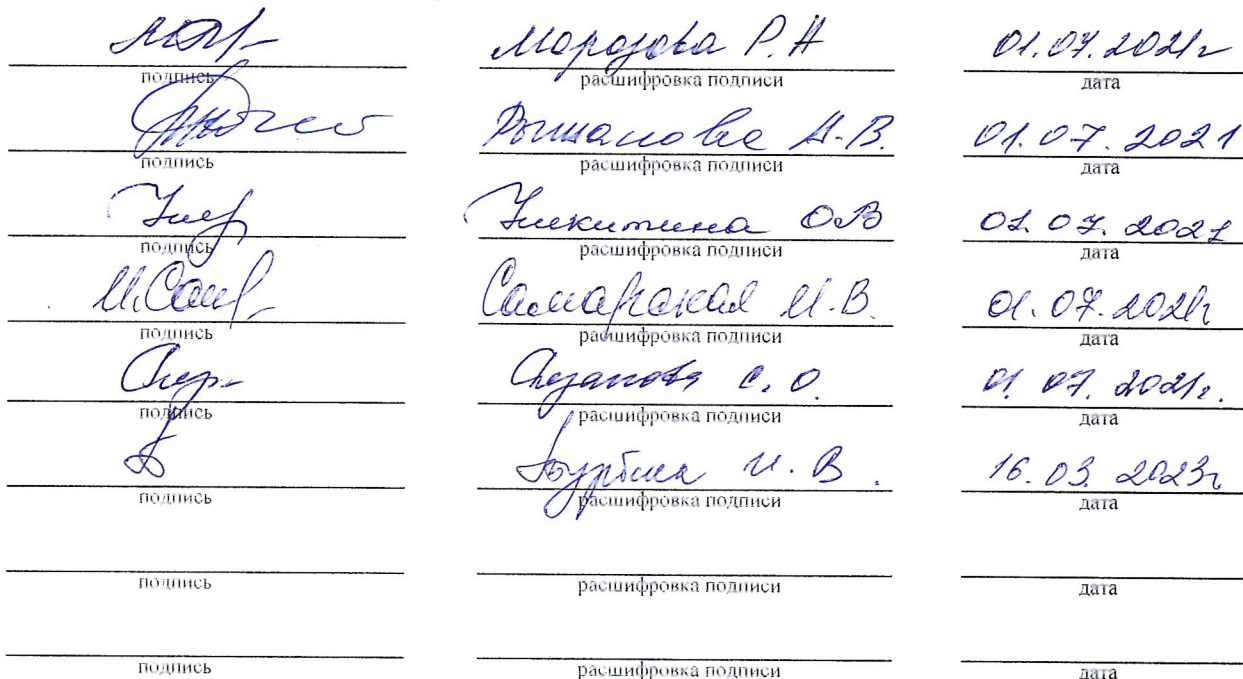 Морозова Р.А 01.07.2021г
подпись расшифровка подписи дата
А.В. 01.07.2021
подпись расшифровка подписи дата
Никитина О.В 01.07.2021
подпись расшифровка подписи дата
И.Сам Самарская И.В. 01.07.2021г
подпись расшифровка подписи дата
С.О. 01.07.2021г.
подпись расшифровка подписи дата
И.В. 16.03.2023г
подпись расшифровка подписи дата
подпись расшифровка подписи дата
подпись расшифровка подписи дата